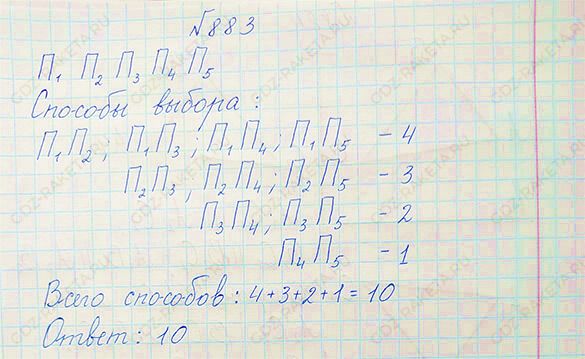 №883
П₁ П₂ П₃ П₄ П₅
Способы выбора:
П₁П₂, П₁П₃; П₁П₄; П₁П₅ - 4
П₂П₃, П₂П₄; П₂П₅ - 3
П₃П₄; П₃П₅ - 2
П₄П₅ - 1
Всего способов: 4+3+2+1=10
Ответ: 10
GDZ-RAKETA.RU